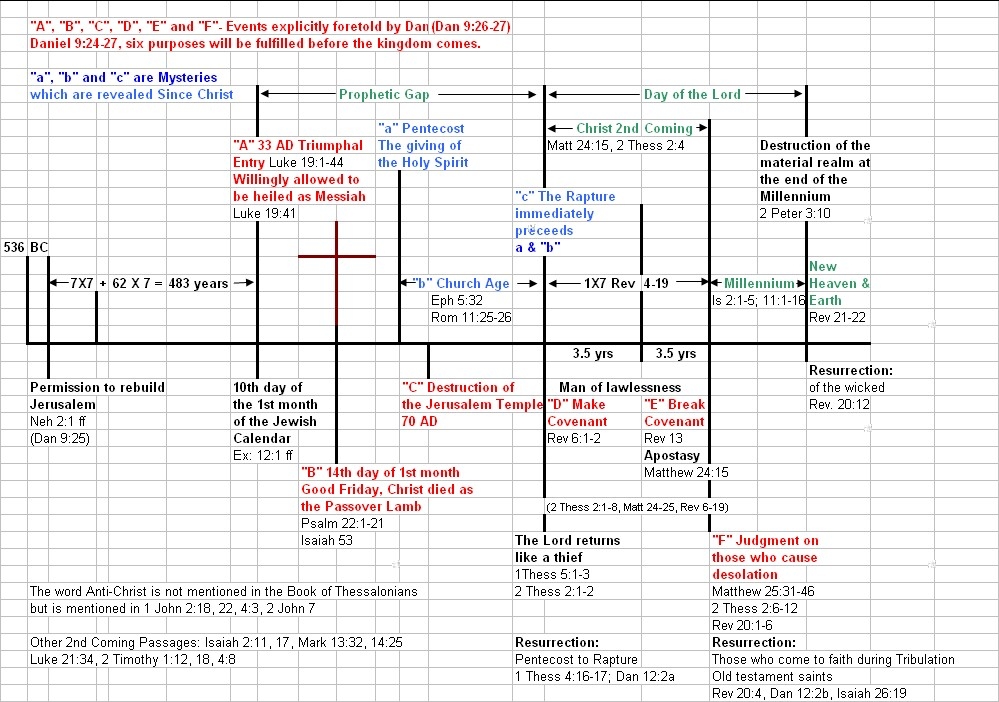 "A", "B", "C", "D", "E" and "F"- Events explicitly foretold by Dan (Dan 9:26-27)
Daniel 9:24-27, six purposes will be fulfilled before the kingdom comes.
"a", "b" and "c" are Mysteries
which are revealed Since Christ
Prophetic Gap
Day of the Lord
"a" Pentecost
The giving of
the Holy Spirit
Christ 2nd Coming
Matt 24:15, 2 Thess 2:4
"A" 33 AD Triumphal
Entry Luke 19:1-44
Willingly allowed to
be heiled as Messiah
Luke 19:41
Destruction of the
material realm at
the end of the
Millennium
2 Peter 3:10
"c" The Rapture
immediately
preceeds
a & "b"
536 BC
7X7 + 62 X 7 = 483 years
"b" Church Age
Eph 5:32
Rom 11:25-26
1X7 Rev 4-19
Millennium
Is 2:1-5; 11:1-16
New
Heaven &
Earth
Rev 21-22
3.5 yrs
3.5 yrs
Permission to rebuild
Jerusalem
Neh 2:1 ff
(Dan 9:25)
10th day of
the 1st month
of the Jewish
Calendar
Ex: 12:1 ff
"C" Destruction of
the Jerusalem Temple
70 AD
Man of lawlessness
"D" Make
Covenant
Rev 6:1-2
"E" Break
Covenant
Rev 13
Apostasy
Matthew 24:15
Resurrection:
of the wicked
Rev. 20:12
"B" 14th day of 1st month
Good Friday, Christ died as
the Passover Lamb
Psalm 22:1-21
Isaiah 53
(2 Thess 2:1-8, Matt 24-25, Rev 6-19)
The Lord returns
like a thief
1Thess 5:1-3
2 Thess 2:1-2
"F" Judgment on
those who cause
desolation
Matthew 25:31-46
2 Thess 2:6-12
Rev 20:1-6
The word Anti-Christ is not mentioned in the Book of Thessalonians
but is mentioned in 1 John 2:18, 22, 4:3, 2 John 7
Other 2nd Coming Passages: Isaiah 2:11, 17, Mark 13:32, 14:25
Luke 21:34, 2 Timothy 1:12, 18, 4:8
Resurrection:
Pentecost to Rapture
1 Thess 4:16-17; Dan 12:2a
Resurrection:
Those who come to faith during Tribulation
Old testament saints
Rev 20:4, Dan 12:2b, Isaiah 26:19